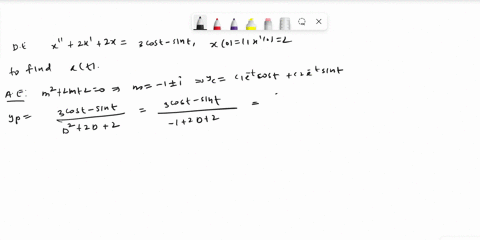 D.E x'' + 2x' + 2x = 3cost - sint, x(0)=1 x'(0)=2
to find x(t).
A.E: m²+2m+2=0 ⇒ m = -1±i ⇒ yc = c1e^-t cost + c2e^-t sint
yp = (3cost - sint)/(D²+2D+2) = (3cost - sint)/(-1+2D+2) =